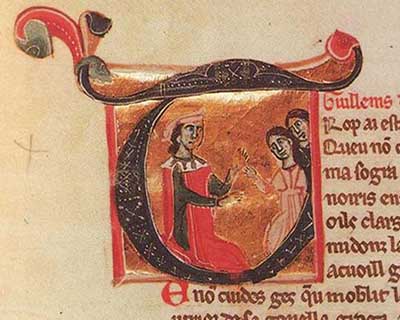 Guillems d
T Rop ai est
Queu nõ c
ma sogra
noiris en
oils clars
midonz la
acuoill g
E nõ cuides ges q̃u moblit l